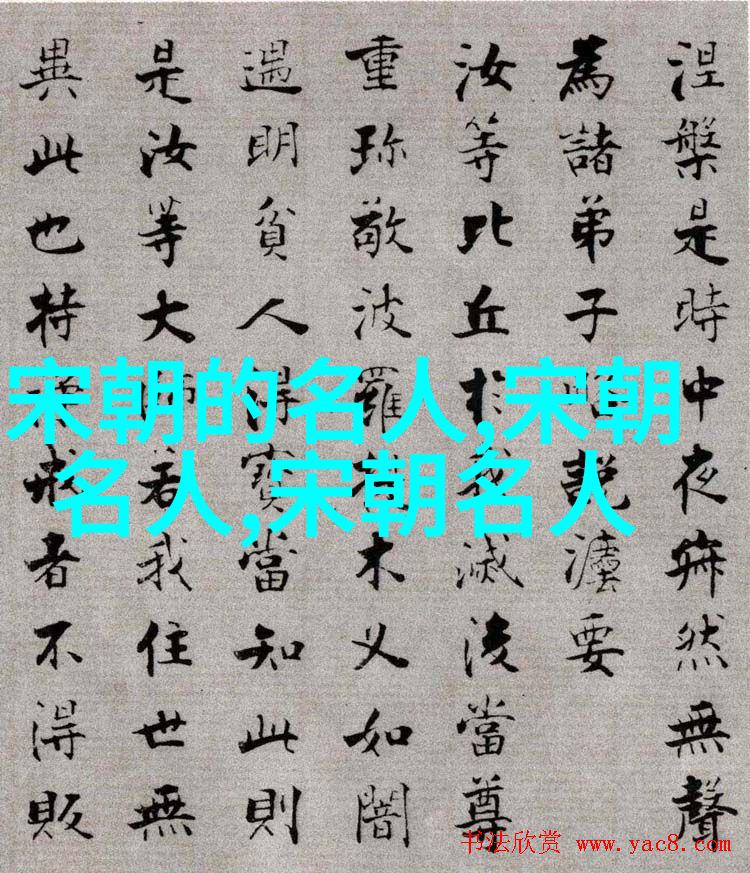 涅槃是時中夜寂然無聲
為諸弟子略說灋要
汝等比丘於我滅後當尊
重珍敬波羅提木叉如闇
遇明貧人得寶當知此則
是汝等大師若我住世無
異此也持淨戒者不得販
宋朝的名人,宋朝
名人,宋朝名人
书法欣赏 www.yac8.com